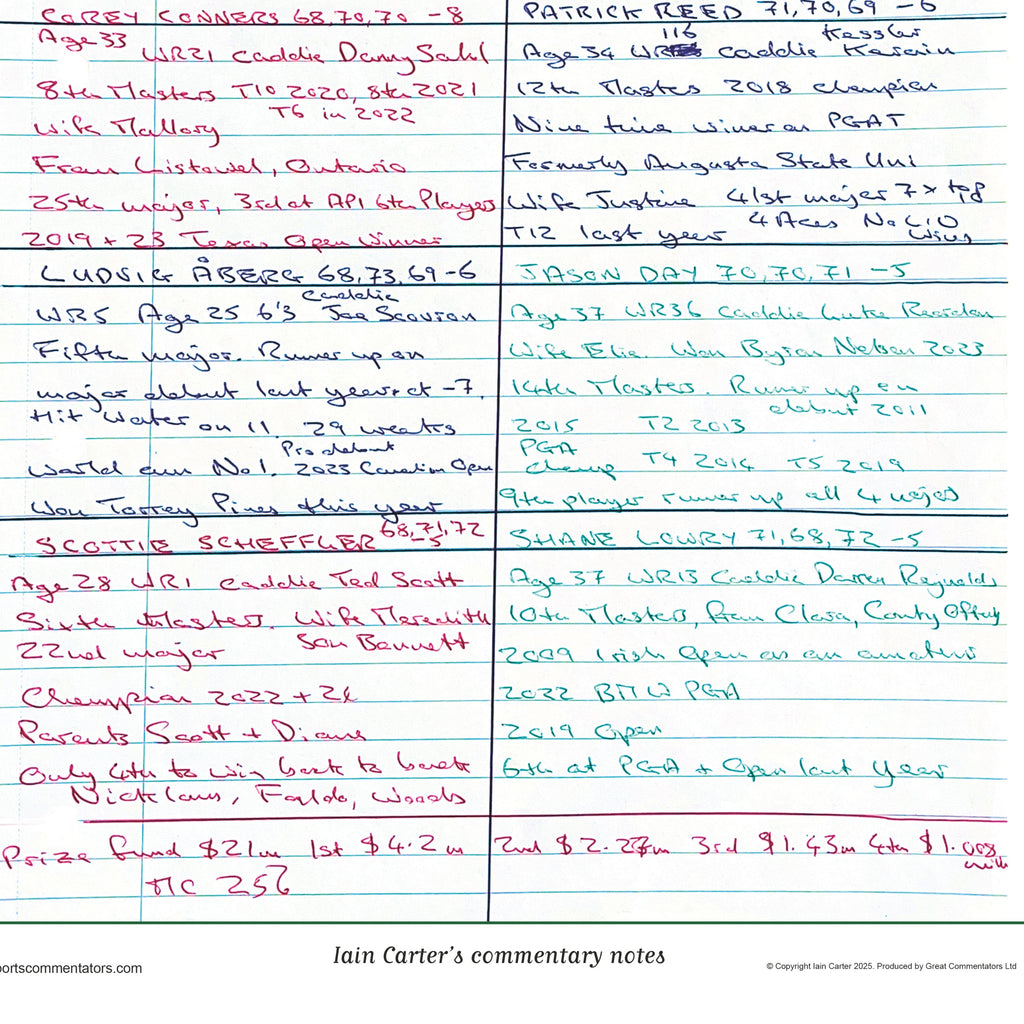 COREY CONNERS 68,70,70 -8
Age 33
WR21 caddie Danny Sahl
8th Masters T10 2020, 8th 2021
T6 in 2022
Wife Mallory
From Listowel, Ontario
25th major, 3rd at API 6th Players
2019 + 23 Texas Open Winner
PATRICK REED 71,70,69 -6
116 Kessler
Age 34 WR caddie Karain
12th Masters 2018 champion
Nine time winner on PGAT
Formerly Augusta State Uni
Wife Justine 41st major 7 x top
4 Aces No LIV
T12 last year Wins
LUDVIG ÅBERG 68,73,69 -6
Caddie
WR5 Age 25 6'3 Joe Scovron
Fifth major. Runner up on
major debut last year at -7.
Hit water on 11 29 weeks
Pro debut
World am No 1. 2023 Canadian Open
Won Torrey Pines this year
JASON DAY 70,70,71 -5
Age 37 WR36 caddie Luke Reardon
Wife Ellie. Won Byron Nelson 2023
14th Masters. Runner up on
debut 2011
2015 T2 2013
PGA
champ T4 2014 T5 2019
9th player runner up all 4 majors
SCOTTIE SCHEFFLER 68,71,72
-5
Age 28 WR1 caddie Ted Scott
Sixth Masters. Wife Meredith
22nd major Son Bennett
Champion 2022 + 24
Parents Scott + Diane
Only 4th to win back to back
Nicklaus, Faldo, Woods
SHANE LOWRY 71,68,72 -5
Age 37 WR13 Caddie Darren Reynolds
10th Masters, from Clara, County Offaly
2009 Irish Open as an amateur
2022 BMW PGA
2019 Open
6th at PGA + Open last year
Prize fund $21m 1st $4.2m 2nd $2.27m 3rd $1.43m 4th $1.008
mill
MC 25%
ortscommentators.com
Iain Carter's commentary notes
© Copyright Iain Carter 2025. Produced by Great Commentators Ltd